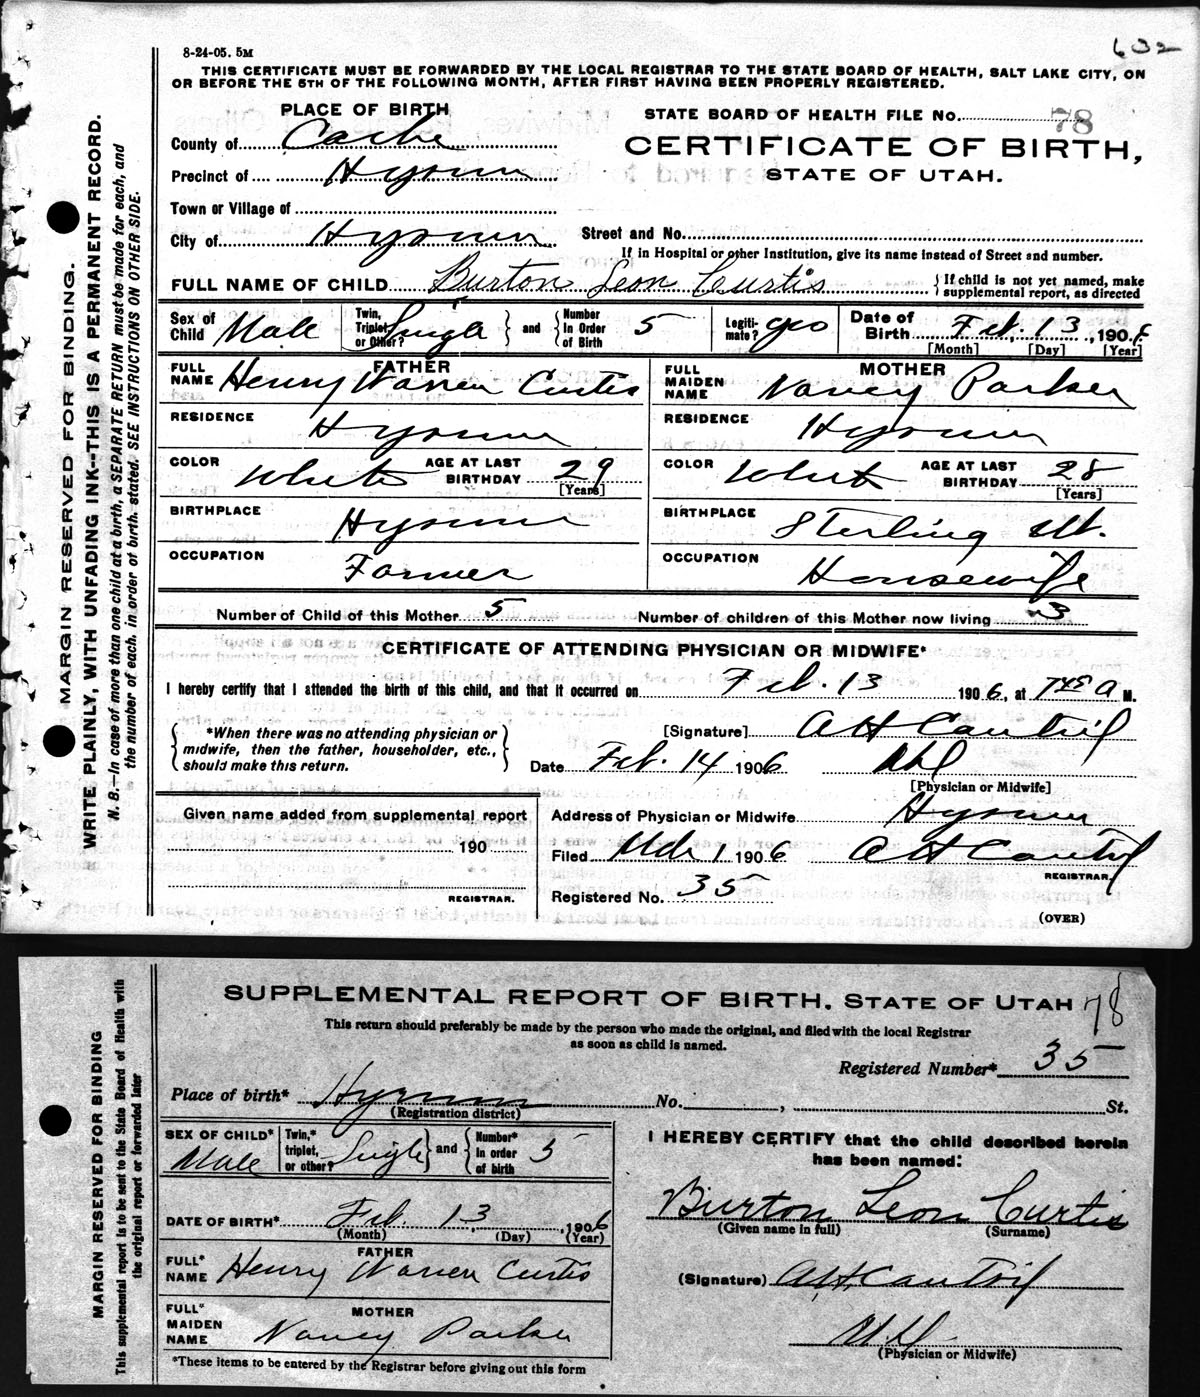 632
8-24-05. 5M
THIS CERTIFICATE MUST BE FORWARDED BY THE LOCAL REGISTRAR TO THE STATE BOARD OF HEALTH, SALT LAKE CITY, ON
OR BEFORE THE 5TH OF THE FOLLOWING MONTH, AFTER FIRST HAVING BEEN PROPERLY REGISTERED.
MARGIN RESERVED FOR BINDING.
WRITE PLAINLY, WITH UNFADING INK--THIS IS A PERMANENT RECORD.
N. B.—In case of more than one child at a birth, a SEPARATE RETURN must be made for each, and
the number of each, in order of birth, stated. SEE INSTRUCTIONS ON OTHER SIDE.
PLACE OF BIRTH
County of Cache
Precinct of Hyrum
Town or Village of
City of Hyrum
STATE BOARD OF HEALTH FILE NO. 78
CERTIFICATE OF BIRTH,
STATE OF UTAH.
Street and No.
If in Hospital or other Institution, give its name instead of Street and number.
FULL NAME OF CHILD Burton Leon Curtis { If child is not yet named, make
supplemental report, as directed
Sex of Child Male Twin, Triplet, or Other? Single } and { Number In Order of Birth 5 Legitimate? yes Date of Birth Feb. 13, 1906
[Month] [Day] [Year]
FATHER
FULL NAME Henry Warren Curtis
RESIDENCE Hyrum
COLOR White AGE AT LAST BIRTHDAY 29
[Years]
BIRTHPLACE Hyrum
OCCUPATION Farmer
MOTHER
FULL MAIDEN NAME Nancy Parker
RESIDENCE Hyrum
COLOR White AGE AT LAST BIRTHDAY 28
[Years]
BIRTHPLACE Sterling Ut.
OCCUPATION Housewife
Number of Child of this Mother 5 Number of children of this Mother now living 3
CERTIFICATE OF ATTENDING PHYSICIAN OR MIDWIFE*
I hereby certify that I attended the birth of this child, and that it occurred on Feb. 13 1906, at 7 45 A M.
{ *When there was no attending physician or
midwife, then the father, householder, etc.,
should make this return. }
[Signature] A H Cantril
Date Feb. 14 1906 MD
[Physician or Midwife]
Given name added from supplemental report
190
REGISTRAR.
Address of Physician or Midwife Hyrum
Filed Mch 1 1906 A H Cantril
REGISTRAR.
Registered No. 35
(OVER)
MARGIN RESERVED FOR BINDING
This supplemental report is to be sent to the State Board of Health with
the original report or forwarded later
SUPPLEMENTAL REPORT OF BIRTH, STATE OF UTAH 78
This return should preferably be made by the person who made the original, and filed with the local Registrar
as soon as child is named.
Registered Number* 35
Place of birth* Hyrum No. , St.
(Registration district)
SEX OF CHILD* Male Twin,* triplet, or other? Single } and { Number* in order of birth 5
DATE OF BIRTH* Feb. 13, 1906
(Month) (Day) (Year)
FATHER
FULL* NAME Henry Warren Curtis
MOTHER
FULL* MAIDEN NAME Nancy Parker
*These items to be entered by the Registrar before giving out this form
I HEREBY CERTIFY that the child described herein
has been named:
Burton Leon Curtis
(Given name in full) (Surname)
(Signature) A.H. Cantril
M.D.
(Physician or Midwife)